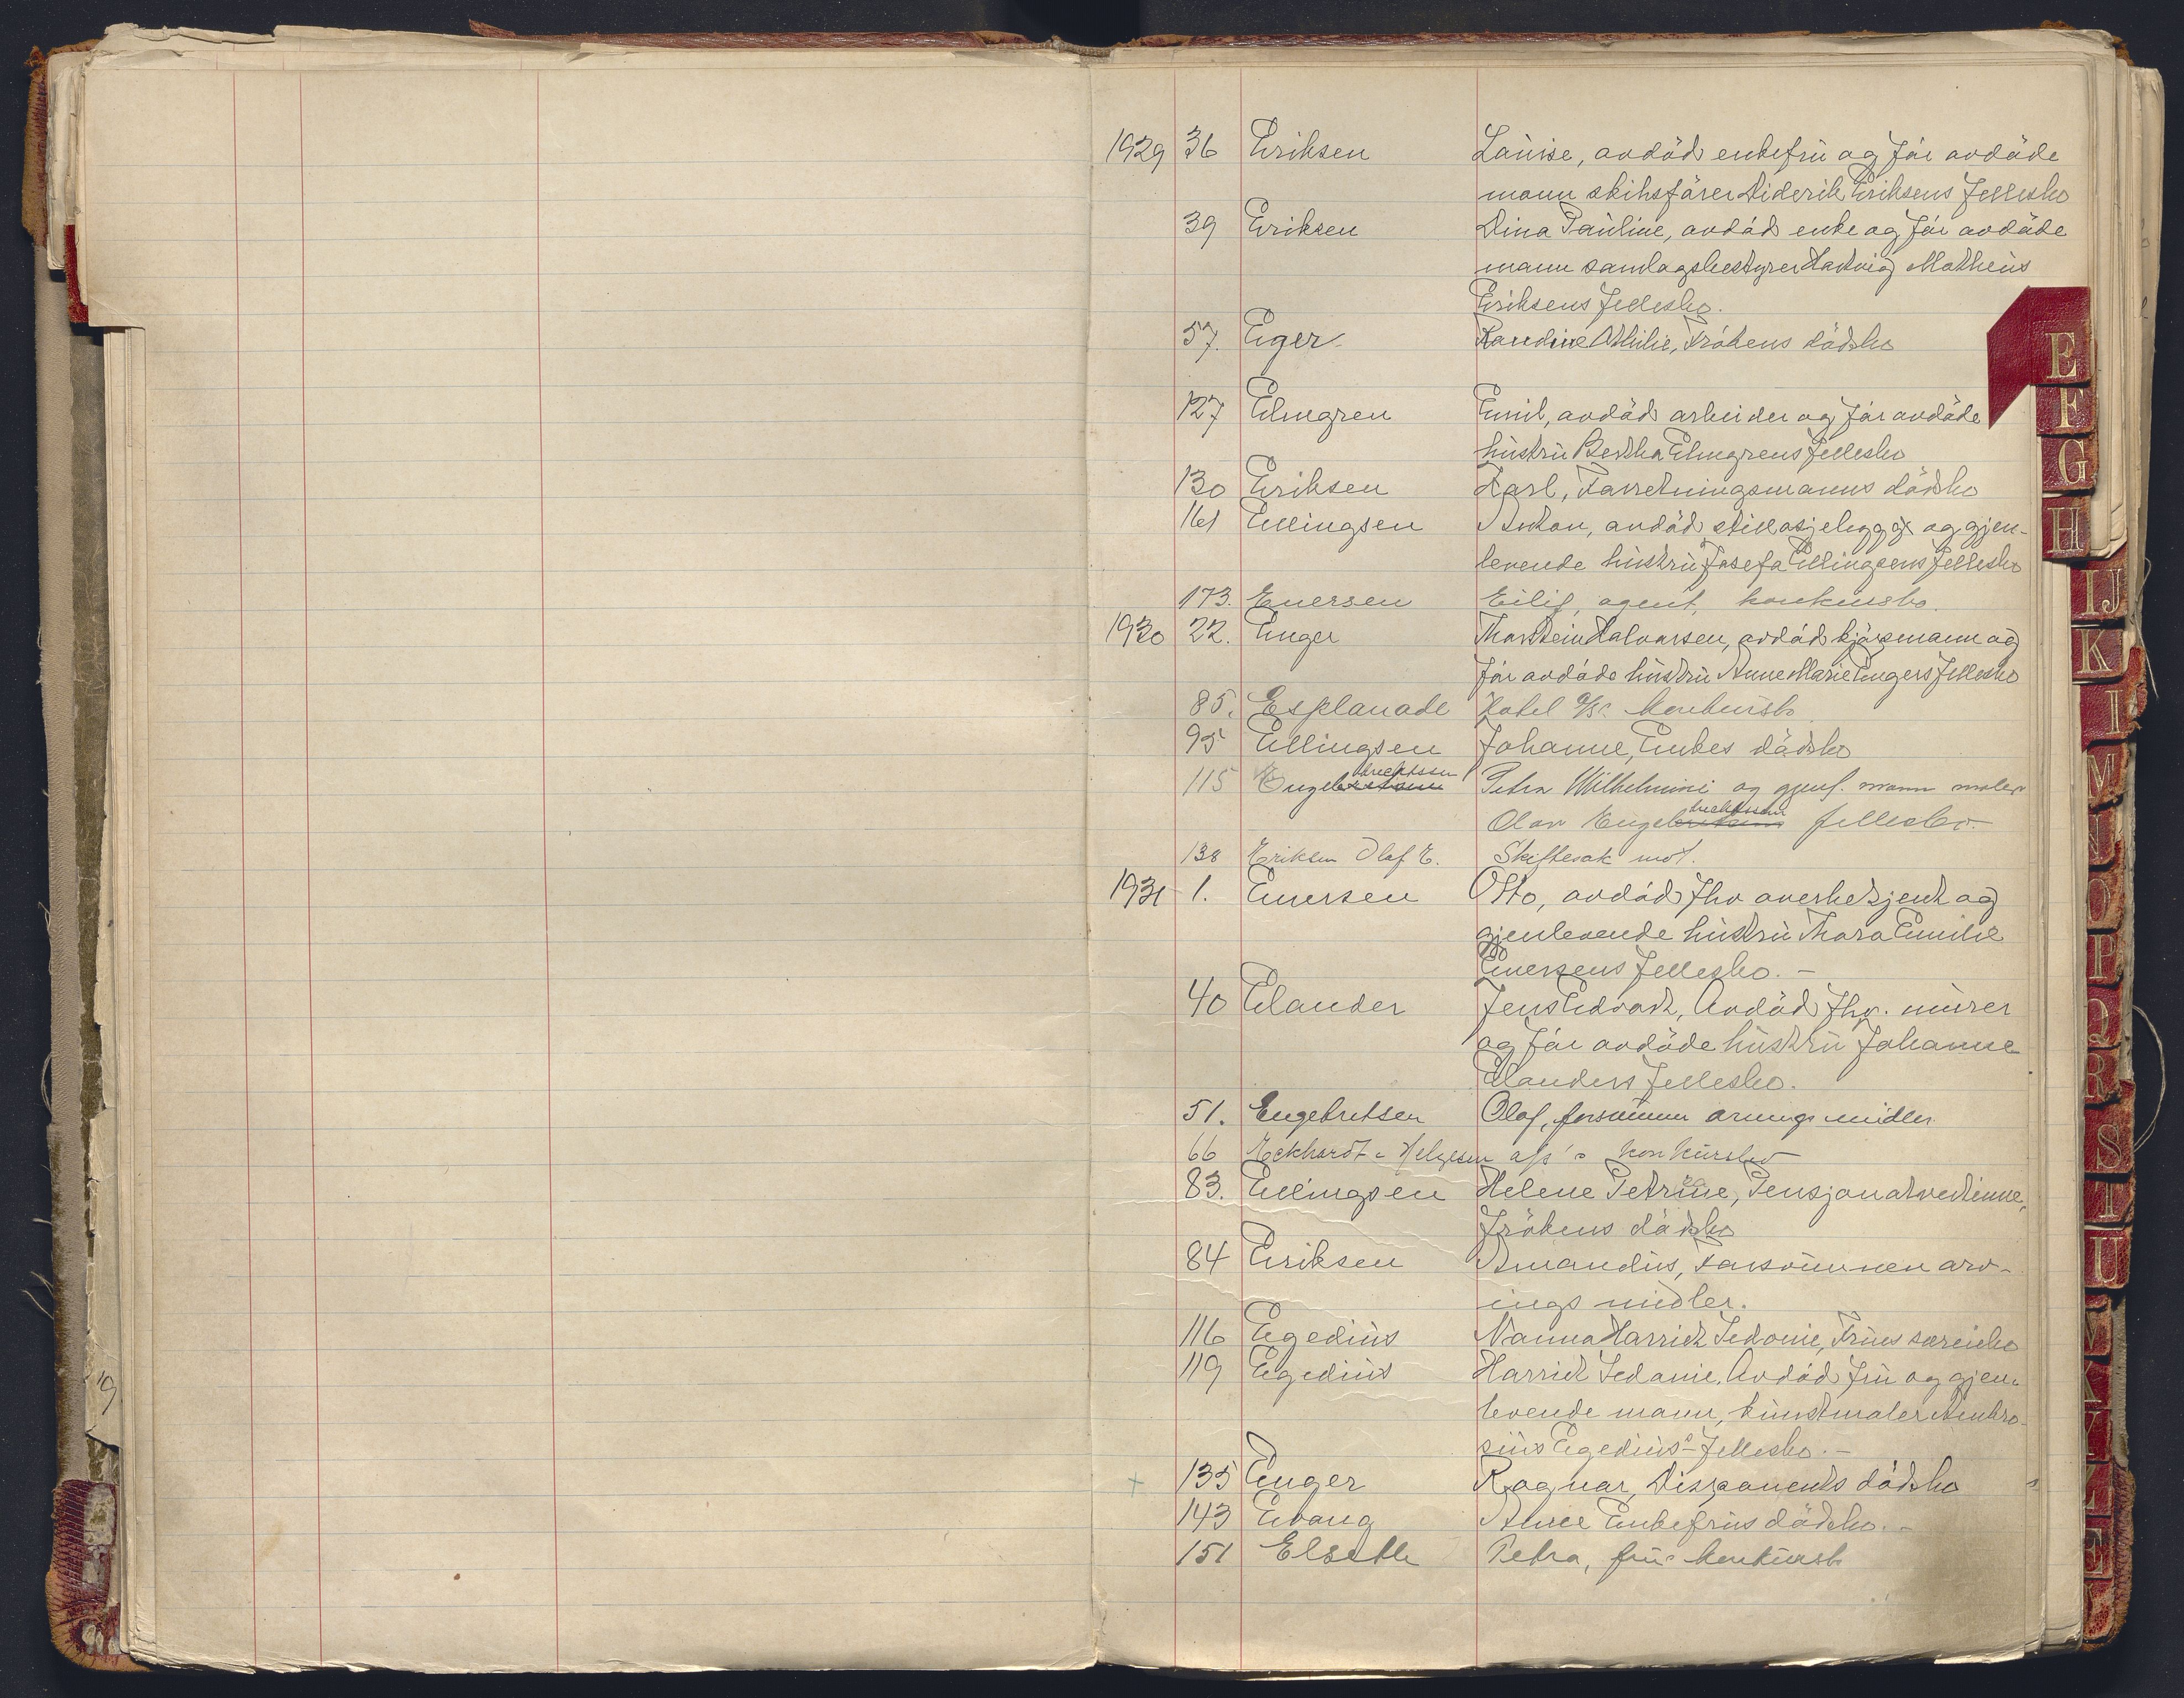 1929 36 Eriksen Louise, avdöd enkefru og før avdöde
mann skibsförer Diderik Eriksens fellesbo
39 Eriksen Dina Pauline, avdöd enke og før avdöde
mann samlagsbestyrer Hartvig Matheus
Eriksens fellesbo.
57. Eger Randine Othilie, Frökens dödsbo
127 Elmgren Emil, avdöd arbeider og før avdöde
hustru Bertha Elmgrens fellesbo
130 Eriksen Karl, Forretningsmanns dödsbo
161 Ellingsen Anton, avdöd og gjen-
levende hustru Josefa Ellingsens fellesbo
173. Enersen Eilif, agent, konkursbo.
1930 22. Enger Thorstein Halvorsen, avdöd kjøpmann og
før avdöde hustru Anne Marie Engers fellesbo
85. Esplanade Hotel A/S: konkursbo
95 Ellingsen Johanne, Enkes dödsbo
brechtsen
115 Engel Petra Wilhelmine og gjenl. mann maler
brechtsen
Olav Engel fellesbo.
138 Eriksen Olaf E. Skiftesak mot.
1931 1. Enersen Otto, avdöd fhv overbetjent og
gjenlevende hustru Thora Emilie
Enersens fellesbo. -
40 Elander Jens Edvard, Avdöd fhv. murer
og før avdöde hustru Johanne
Elanders fellesbo.
51. Engebretsen Olaf, forsvunnen arvings midler
66 Eckhardt & Helgesen a/s's konkursbo
83. Ellingsen Helene Petrine, Pensjonatvertinne,
Frökens dödsbo
84 Eriksen Amandus, Forsvunnen arv-
ings midler.
116 Egedius Nanna Harriet Sedonie, Frues særeiebo
119 Egedius Harriet Sedonie, Avdöd fru og gjen-
levende mann, kunstmaler Ambro-
sius Egedius' fellesbo. -
+ 135 Enger Ragnar, Disponents dödsbo
143 Evang Enkefrus dödsbo. -
151 Elseth Petra, frue konkursbo
9
E
F
G
H
IJ
K
N
O
P
Q
R
S
T
U